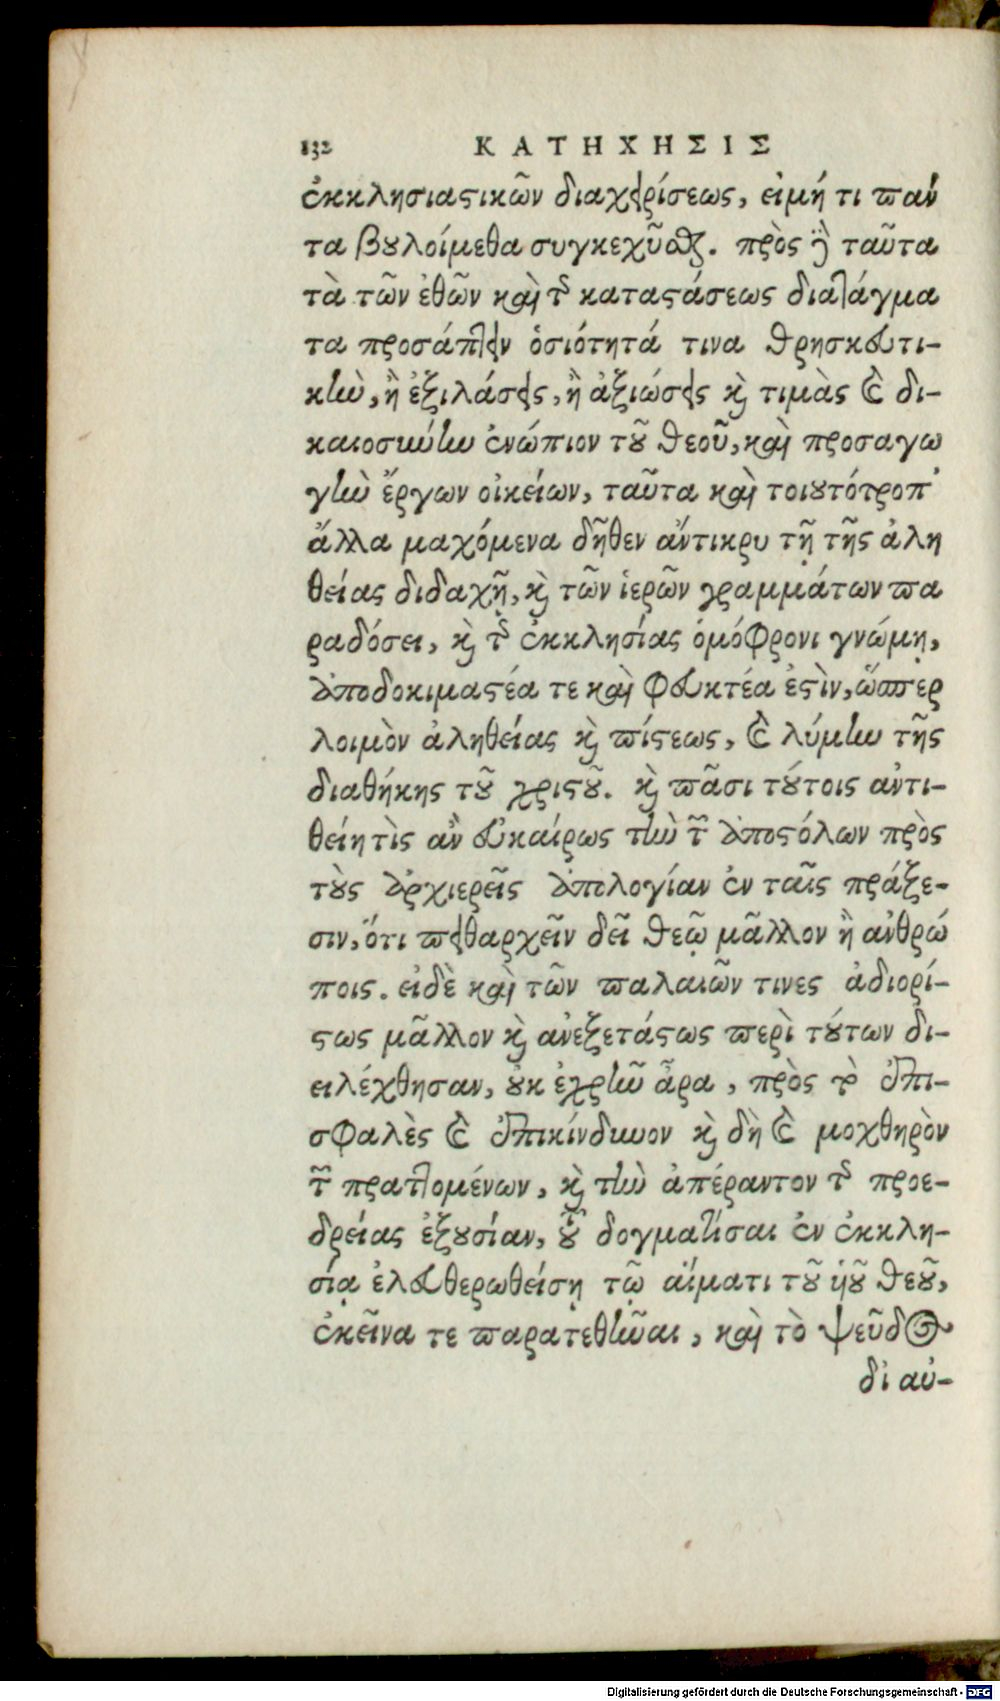 132 ΚΑΤΗΧΗΣΙΣ
ἐκκλησιαστικῶν διαχειρίσεως, εἰμή τι πάν
τα βουλοίμεθα συγκεχῦσθαι. πρὸς δὲ ταῦτα
τὰ τῶν ἐθῶν καὶ τῆς καταστάσεως διατάγμα
τα προσάπτειν ὁσιότητά τινα θρησκευτι-
κὴν, ἢ ἐξιλάσεις, ἢ ἀξιώσεις καὶ τιμὰς καὶ δι-
καιοσύνην ἐνώπιον τοῦ θεοῦ, καὶ προσαγω
γὴν ἔργων οἰκείων, ταῦτα καὶ τοιουτότροπ'
ἄλλα μαχόμενα δῆθεν ἄντικρυ τῇ τῆς ἀλη
θείας διδαχῇ, καὶ τῶν ἱερῶν γραμμάτων πα
ραδόσει, καὶ τῆς ἐκκλησίας ὁμόφρονι γνώμῃ,
ἀποδοκιμαστέα τε καὶ φευκτέα ἐστὶν, ὥσπερ
λοιμὸν ἀληθείας καὶ πίστεως, καὶ λύμην τῆς
διαθήκης τοῦ χριστοῦ. καὶ πᾶσι τούτοις ἀντι-
θείη τὶς ἂν εὐκαίρως τὴν τῶν ἀποστόλων πρὸς
τοὺς ἀρχιερεῖς ἀπολογίαν ἐν ταῖς πράξε-
σιν, ὅτι πειθαρχεῖν δεῖ θεῷ μᾶλλον ἢ ἀνθρώ
ποις. εἰδὲ καὶ τῶν παλαιῶν τινες ἀδιορί-
στως μᾶλλον καὶ ἀνεξετάστως περὶ τούτων δι-
ειλέχθησαν, οὐκ ἐχρῆν ἆρα, πρὸς τὸ ἐπι-
σφαλὲς καὶ ἐπικίνδυνον καὶ δὴ καὶ μοχθηρὸν
τῶν πραττομένων, καὶ τὴν ἀπέραντον τῆς προε-
δρείας ἐξουσίαν, τοῦ δογματίσαι ἐν ἐκκλη-
σίᾳ ἐλευθερωθείσῃ τῷ αἵματι τοῦ υἱοῦ θεοῦ,
ἐκεῖνα τε παρατεθῆναι, καὶ τὸ ψεῦδος
δἰ αὐ-
Digitalisierung gefördert durch die Deutsche Forschungsgemeinschaft - DFG